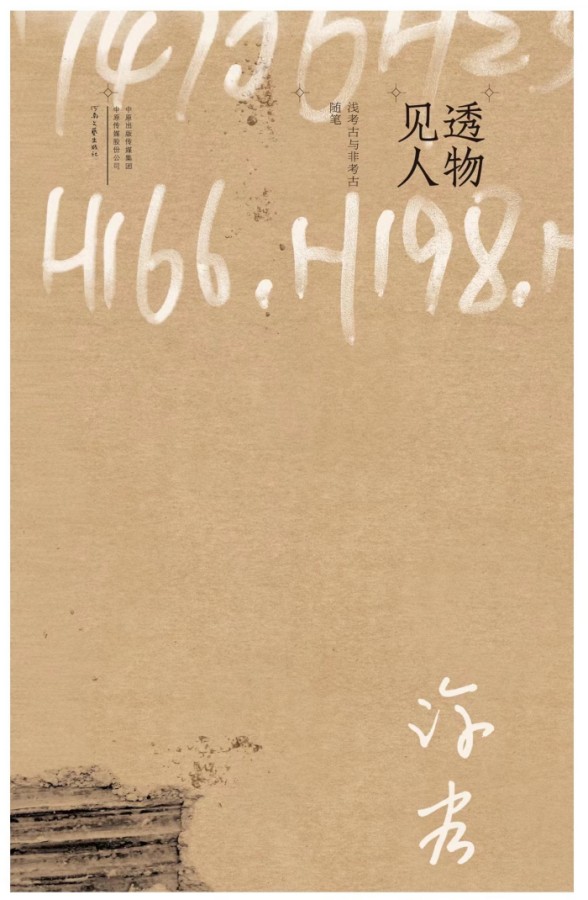 透物
见人
浅考古与非考古
随笔
中原出版传媒集团
中原传媒股份公司
河南文艺出版社
H166.H198.H
许宏